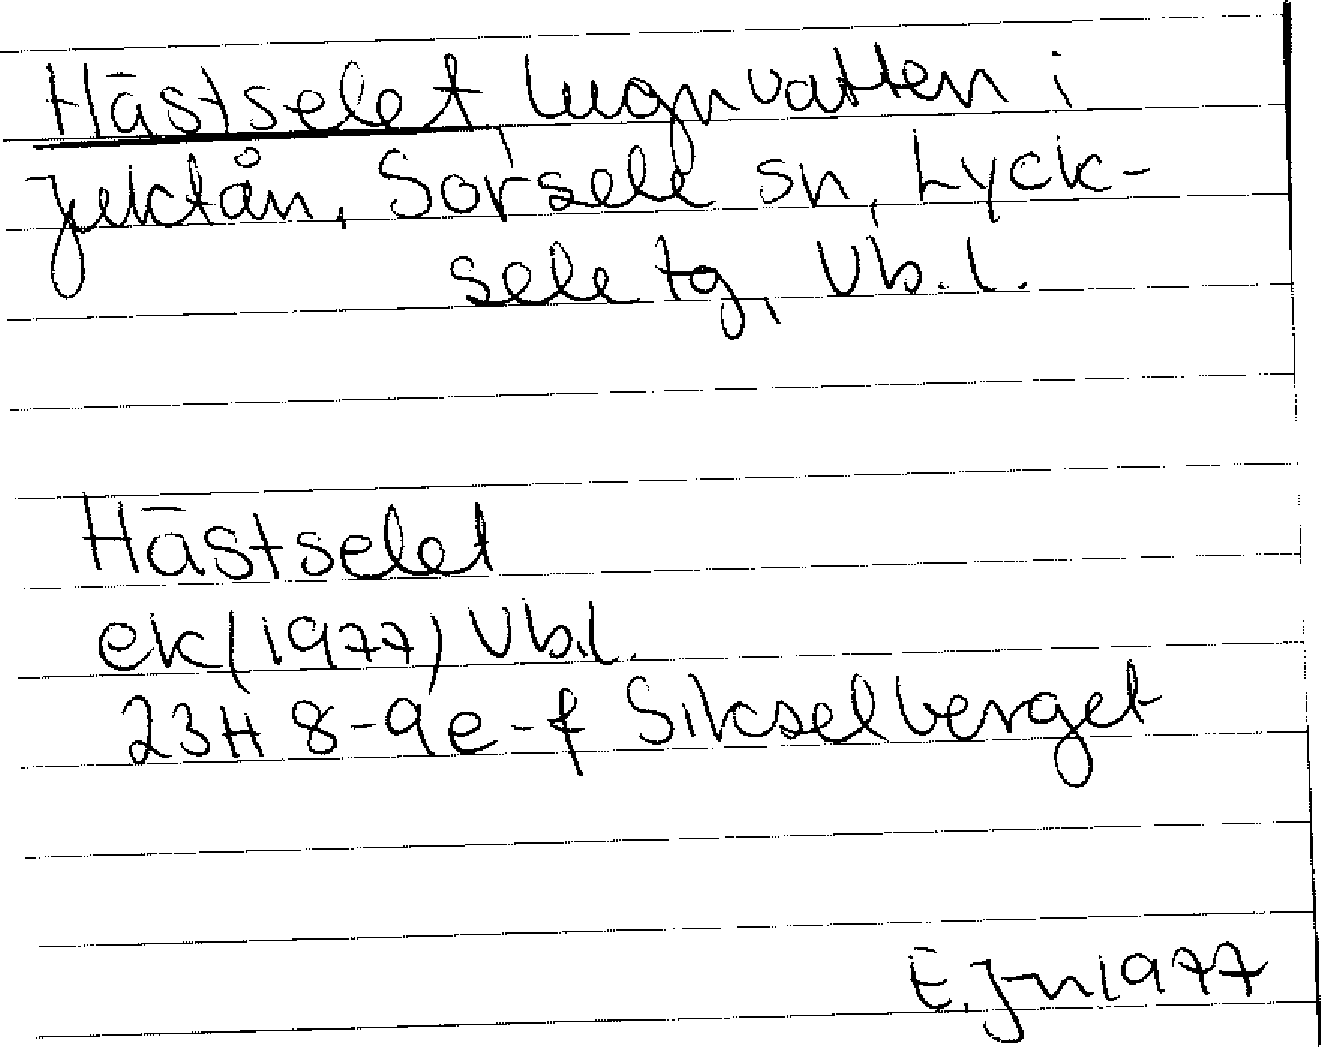 Hästselet, lugnvatten i
Juktån, Sorsele sn, Lyck-
sele tg, Vb.l.
Hästselet
ek (1977) Vb.l.
23H 8-9e-f Sikselberget
E. J-n 1977